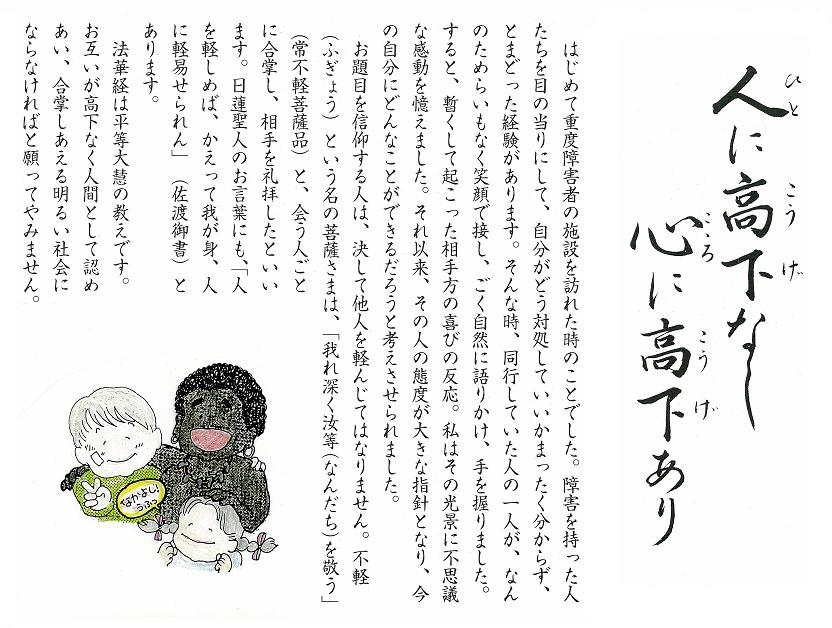 人に高下なし
ひと こうげ
心に高下あり
こころ こうげ
はじめて重度障害者の施設を訪れた時のことでした。障害を持った人
たちを目の当りにして、自分がどう対処していいかまったく分からず、
とまどった経験があります。そんな時、同行していた人の一人が、なん
のためらいもなく笑顔で接し、ごく自然に語りかけ、手を握りました。
すると、暫くして起こった相手方の喜びの反応。私はその光景に不思議
な感動を憶えました。それ以来、その人の態度が大きな指針となり、今
の自分にどんなことができるだろうと考えさせられました。
お題目を信仰する人は、決して他人を軽んじてはなりません。不軽
（ふぎょう）という名の菩薩さまは、「我れ深く汝等(なんだち)を敬う」
（常不軽菩薩品）と、会う人ごと
に合掌し、相手を礼拝したといい
ます。日蓮聖人のお言葉にも、「人
を軽しめば、かえって我が身、人
に軽易せられん」（佐渡御書）と
あります。
法華経は平等大慧の教えです。
お互いが高下なく人間として認め
あい、合掌しあえる明るい社会に
ならなければと願ってやみません。
なかよし!
うふっ